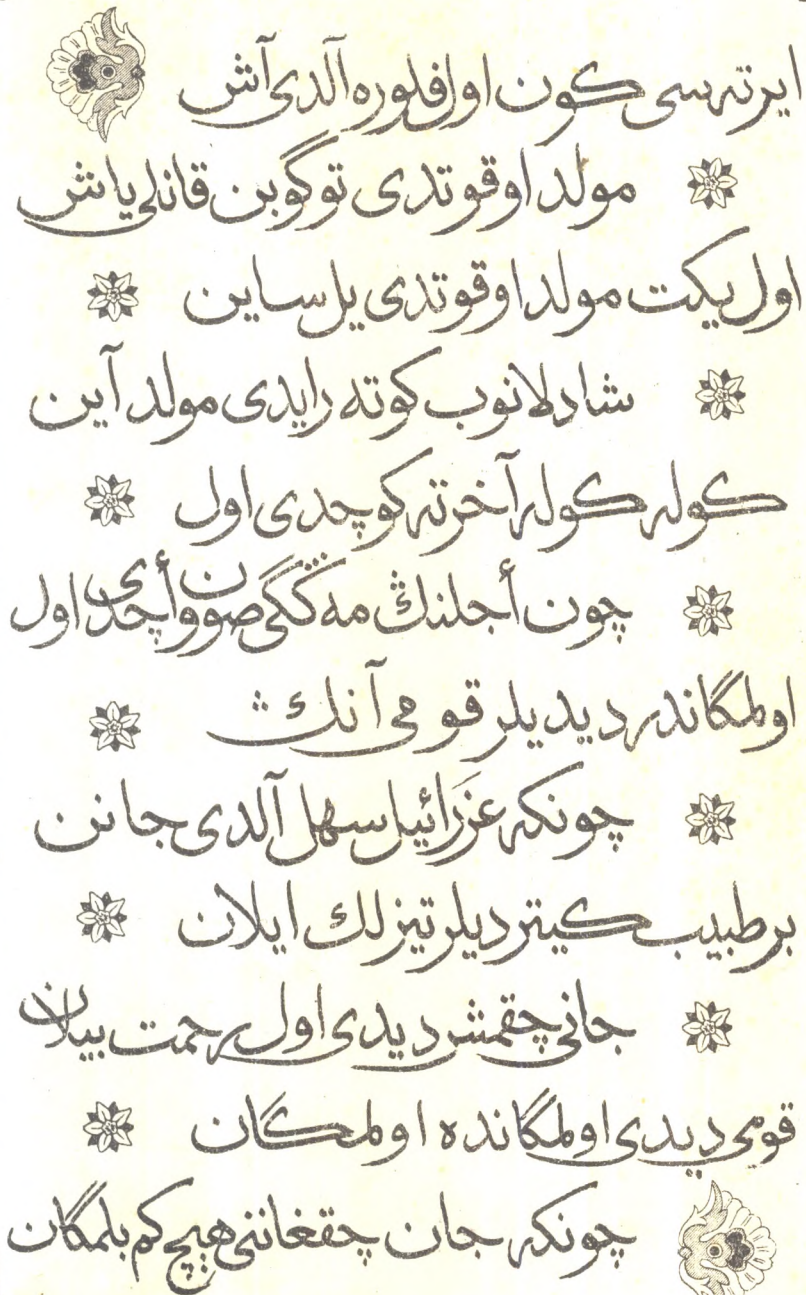 ايرته‌سى كون اول فلوره آلدى آش
مولد اوقوتدى توگوبن قانلى ياش
اول يكت مولد اوقوتدى يل ساين
شادلانوب كوته رايدى مولد آين
كوله كوله آخرته كوچدى اول
چون أجلنڭ مه ڭگى صووىن أچدى اول
اولمگاندر ديديلر قومى آنڭ
چونكه عزَرائيل سهل آلدى جانن
بر طبيب كيترديلر تيزلك ايلان
جانى چقمش ديدى اول رحمت بيلان
قومى ديدى اولمگانده اولمگان
چونكه جان چقغاننى هيچ كم بلمگان